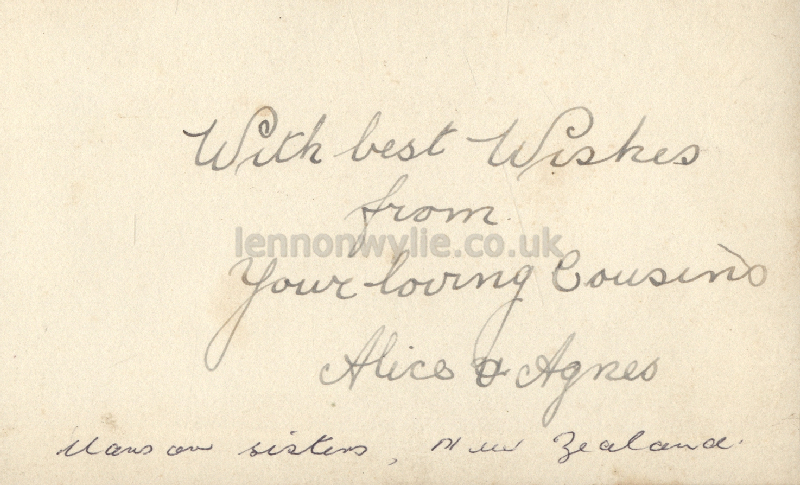 With best Wishes
from
lennonwylie.co.uk
Your loving Cousins
Alice & Agnes
Manson sisters, New Zealand.